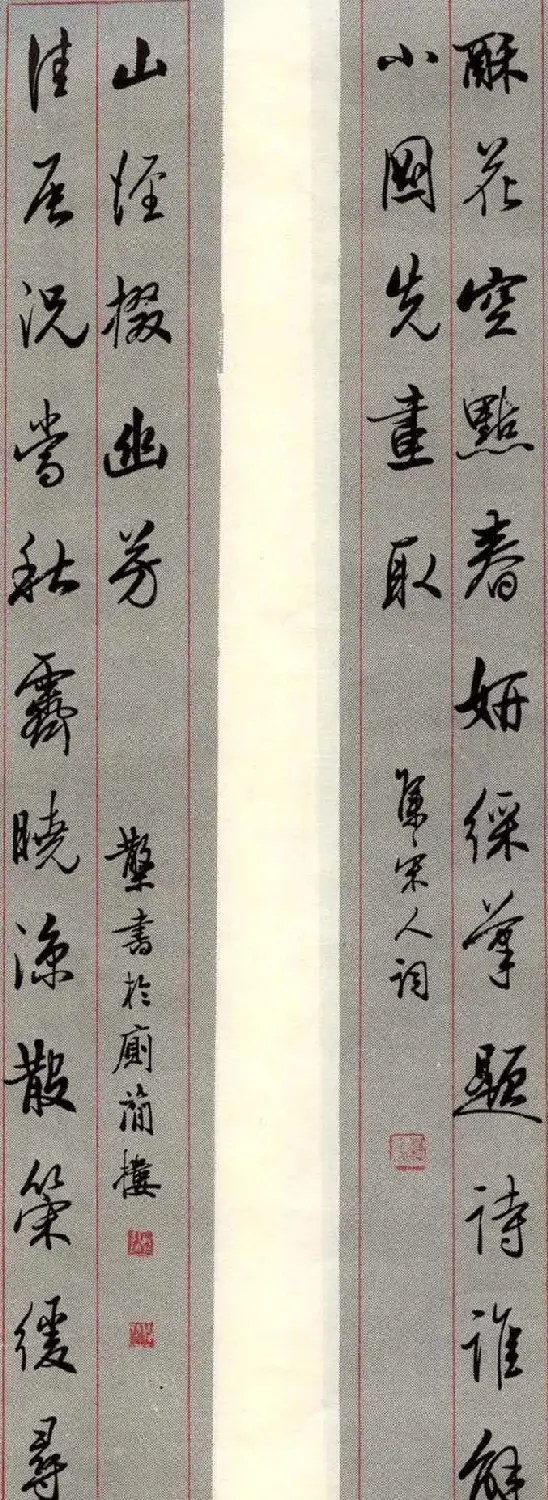 酥花空點春妍綵筆題詩誰解
小圖先畫取
集宋人詞
佳辰況當秋霽曉涼散策緩尋
山徑掇幽芳
書於廁簡樓